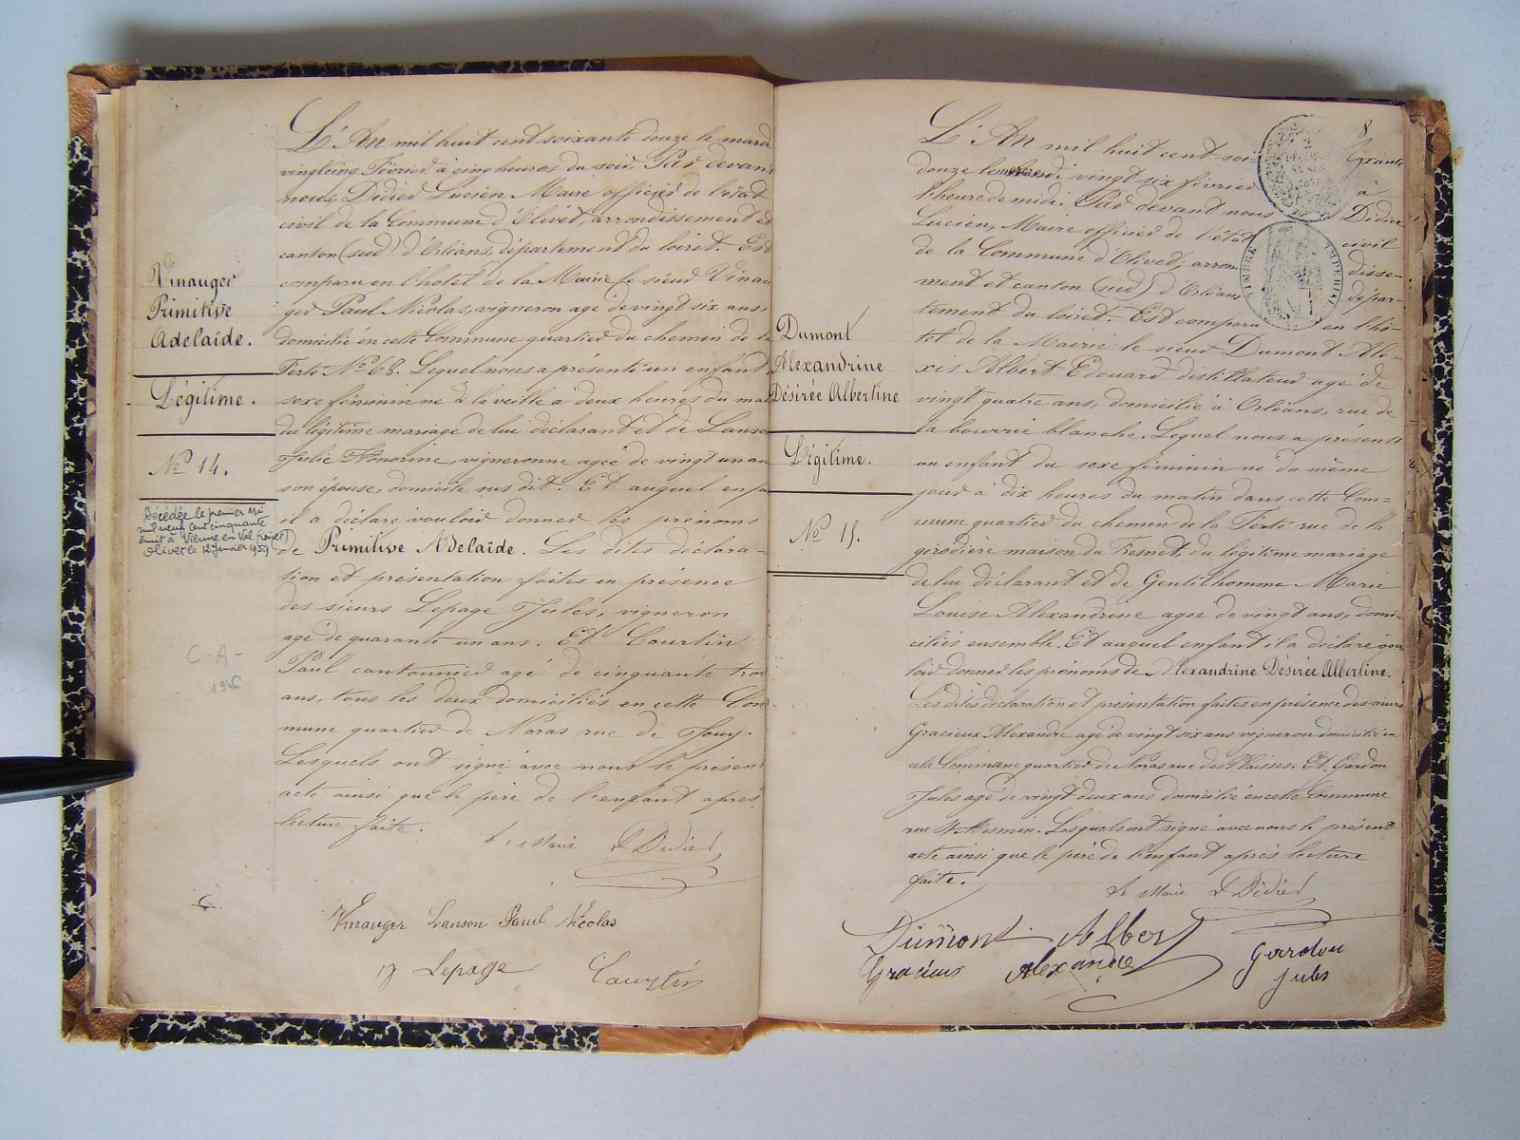 Vinauger
Primitive
Adelaïde.
Légitime.
Nº 14.
Décédée le premier
mil neuf cent cinquante
huit à Vienne en Val (Loiret)
Olivet le 12 janvier 1959
C-A-
L'An mil huit cent soixante douze le mardi
vingt cinq Février à cinq heures du soir. Par devant
nous, Didier Lucien, Maire officier de l'état
civil de la Commune d'Olivet, arrondissement et
canton (sud) d'Orléans, département du Loiret. Est
comparu en l'hotel de la Mairie le sieur Vinau
ger Paul Nicolas, vigneron agé de vingt six ans,
domicilié en cette Commune quartier du chemin de la
Ferté Nº 68. Lequel nous a présenté un enfant
sexe féminin né la veille à deux heures du mat
du légitime mariage de lui déclarant et de Lanson
Julie Honorine, vigneronne agée de vingt un an
son épouse, domicile sus dit. Et auquel enfa
il a déclaré vouloir donner les prénoms
de Primitive Adelaïde. Les dites déclara-
tion et présentation faites en présence
des sieurs Lepage Jules, vigneron
agé de quarante un ans. Et Courtin
Paul cantonnier agé de cinquante trois
ans, tous les deux domiciliés en cette Com
mune quartier de Noras rue de
Lesquels ont signé avec nous le présent
acte ainsi que le père de l'enfant après
lecture faite.
Le Maire L Didier
Vinauger Lanson Paul Nicolas
Lepage Courtin
8
Dumont
Alexandrine
Désirée Albertine
Légitime.
Nº 15.
L'An mil huit cent soixante
douze le vingt six février à
l'heure de midi. Par devant nous Didier
Lucien, Maire officier de l'état civil
de la Commune d'Olivet, arrondisse-
ment et canton (sud) d'Orléans dépar-
tement du Loiret. Est comparu en l'hô-
tel de la Mairie le sieur Dumont Ale-
xis Albert Edouard distillateur agé de
vingt quatre ans, domicilié à Orléans, rue de
la bourrie blanche. Lequel nous a présenté
un enfant du sexe féminin né du même
jour à dix heures du matin dans cette Com-
mune quartier du chemin de la Ferté rue de la
girodière maison du Fresnet, du légitime mariage
de lui déclarant et de Gentilhomme Marie
Louise Alexandrine agée de vingt ans, domi-
ciliés ensemble. Et auquel enfant il a déclaré vou
loir donner les prénoms de Alexandrine Désirée Albertine.
Les dites déclaration et présentation faites en présence des sieurs
Gracieux Alexandre agé de vingt six ans vigneron domicilié en
cette Commune quartier de Noras rue des Et Gardou
Jules agé de vingt deux ans domicilié en cette Commune
rue St Mesmin. Lesquels ont signé avec nous le présent
acte ainsi que le père de l'enfant après lecture
faite.
Le Maire L Didier
Dumont Albert
Gracieux Alexandre
Gardou
Jules
TIMBRE IMPERIAL